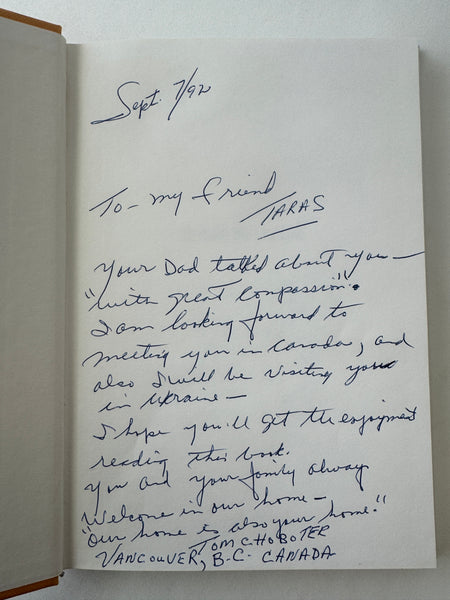 Sept. 7/92
To - my friend
TARAS
Your Dad talked about you -
"with great compassion".
I am looking forward to
meeting you in Canada, and
also I will be visiting you
in Ukraine -
I hope you'll get the enjoyment
reading this book.
You and your family always
Welcome in our home -
"Our home is also your home."
TOM CHOBOTER
VANCOUVER, B.C. CANADA